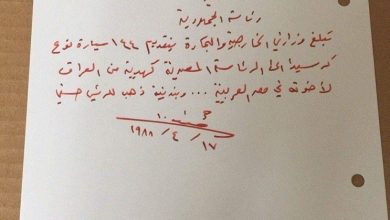 رئاسة الجمهورية
تبلغ وزارتي الخارجية والتجارة بتقديم ١٤٤ سيارة نوع
الى الرئاسة المصرية كهدية من العراق
لأخوته في مصر العربية ... وبندقية ذهب للرئيس حسني
١٧ / ٤ / ١٩٨٨